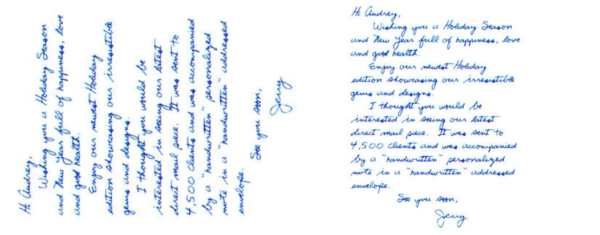 Hi Audrey,
Wishing you a Holiday Season
and New Year full of happiness, love
and good health.
Enjoy our newest Holiday
edition showcasing our irresistible
gems and designs.
I thought you would be
interested in seeing our latest
direct mail piece. It was sent to
4,500 clients and was accompanied
by a "handwritten" personalized
note in a "handwritten" addressed
envelope.
See you soon,
Jerry
Hi Audrey,
Wishing you a Holiday Season
and New Year full of happiness, love
and good health.
Enjoy our newest Holiday
edition showcasing our irresistible
gems and designs.
I thought you would be
interested in seeing our latest
direct mail piece. It was sent to
4,500 clients and was accompanied
by a "handwritten" personalized
note in a "handwritten" addressed
envelope.
See you soon,
Jerry